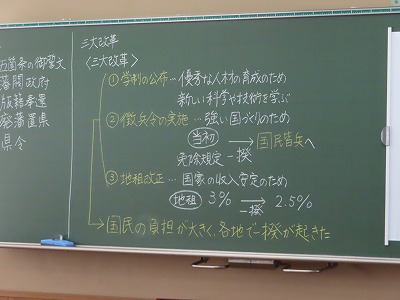 五箇条の御誓文
藩閥政府
版籍奉還
廃藩置県
県令
三大改革
〈三大改革〉
①学制の公布…優秀な人材の育成のため
新しい科学や技術を学ぶ
②徴兵令の実施…強い国づくりのため
当初 → 国民皆兵へ
免除規定 一揆
③地租改正…国家の収入安定のため
地租 3% → 2.5%
一揆
国民の負担が大きく、各地で一揆が起きた